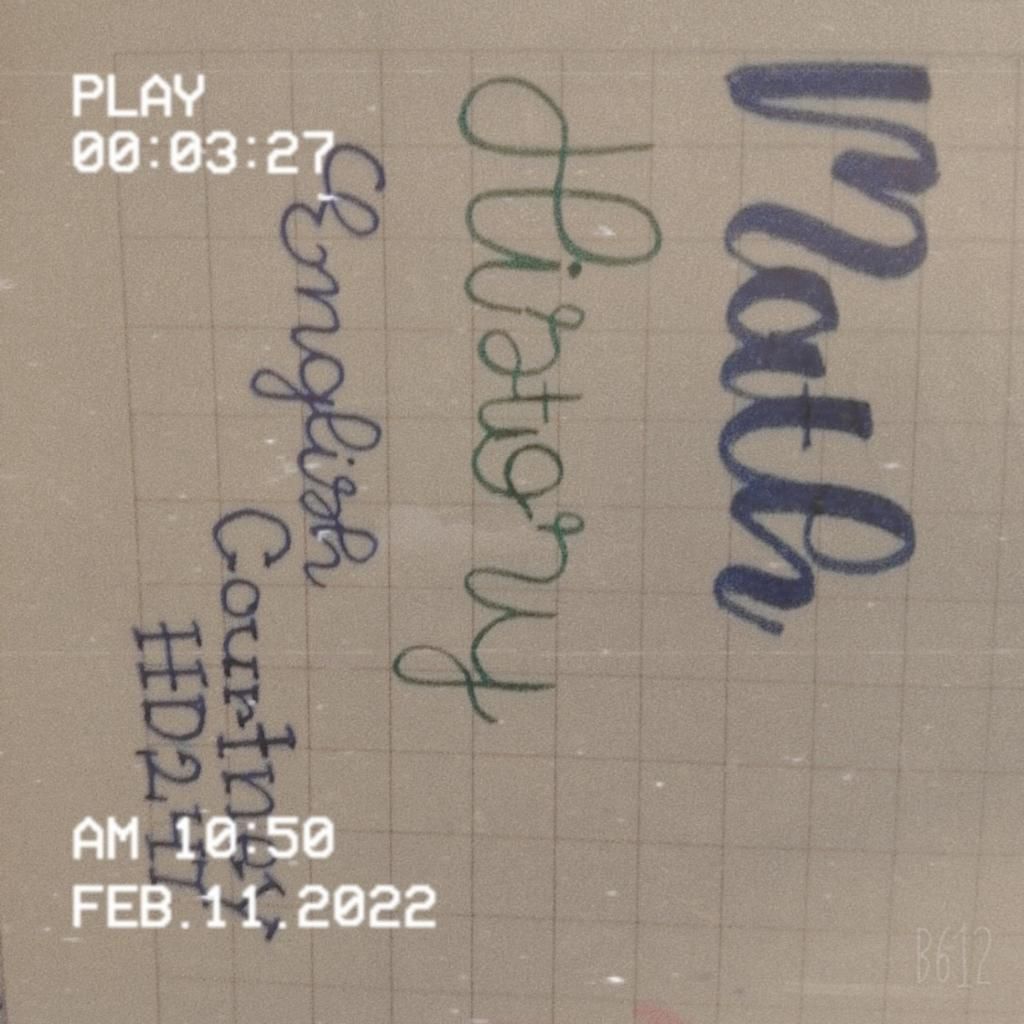 PLAY
00:03:27
Math
History
English
AM 10:50
FEB.11.2022
B612